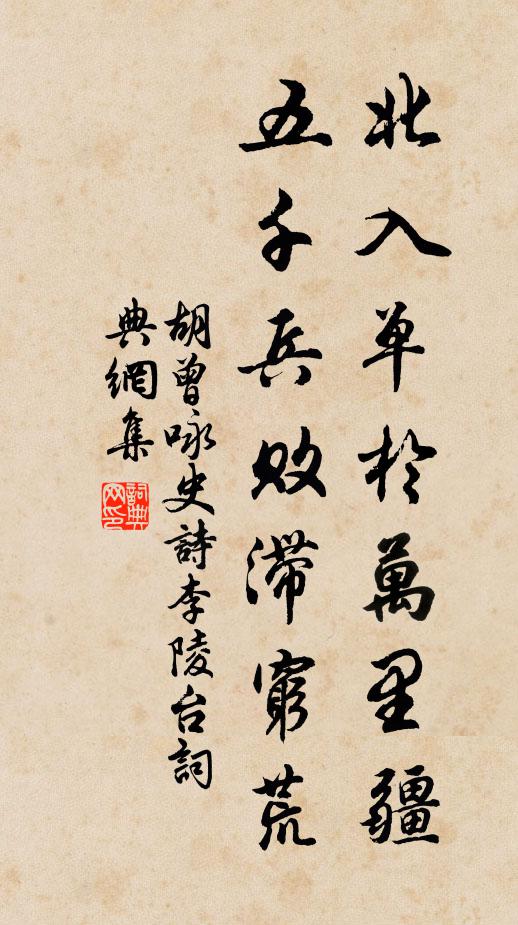 北入單於萬里疆
五千兵敗滯窮荒
胡曾咏史詩李陵台詞
典網集
詞典网印